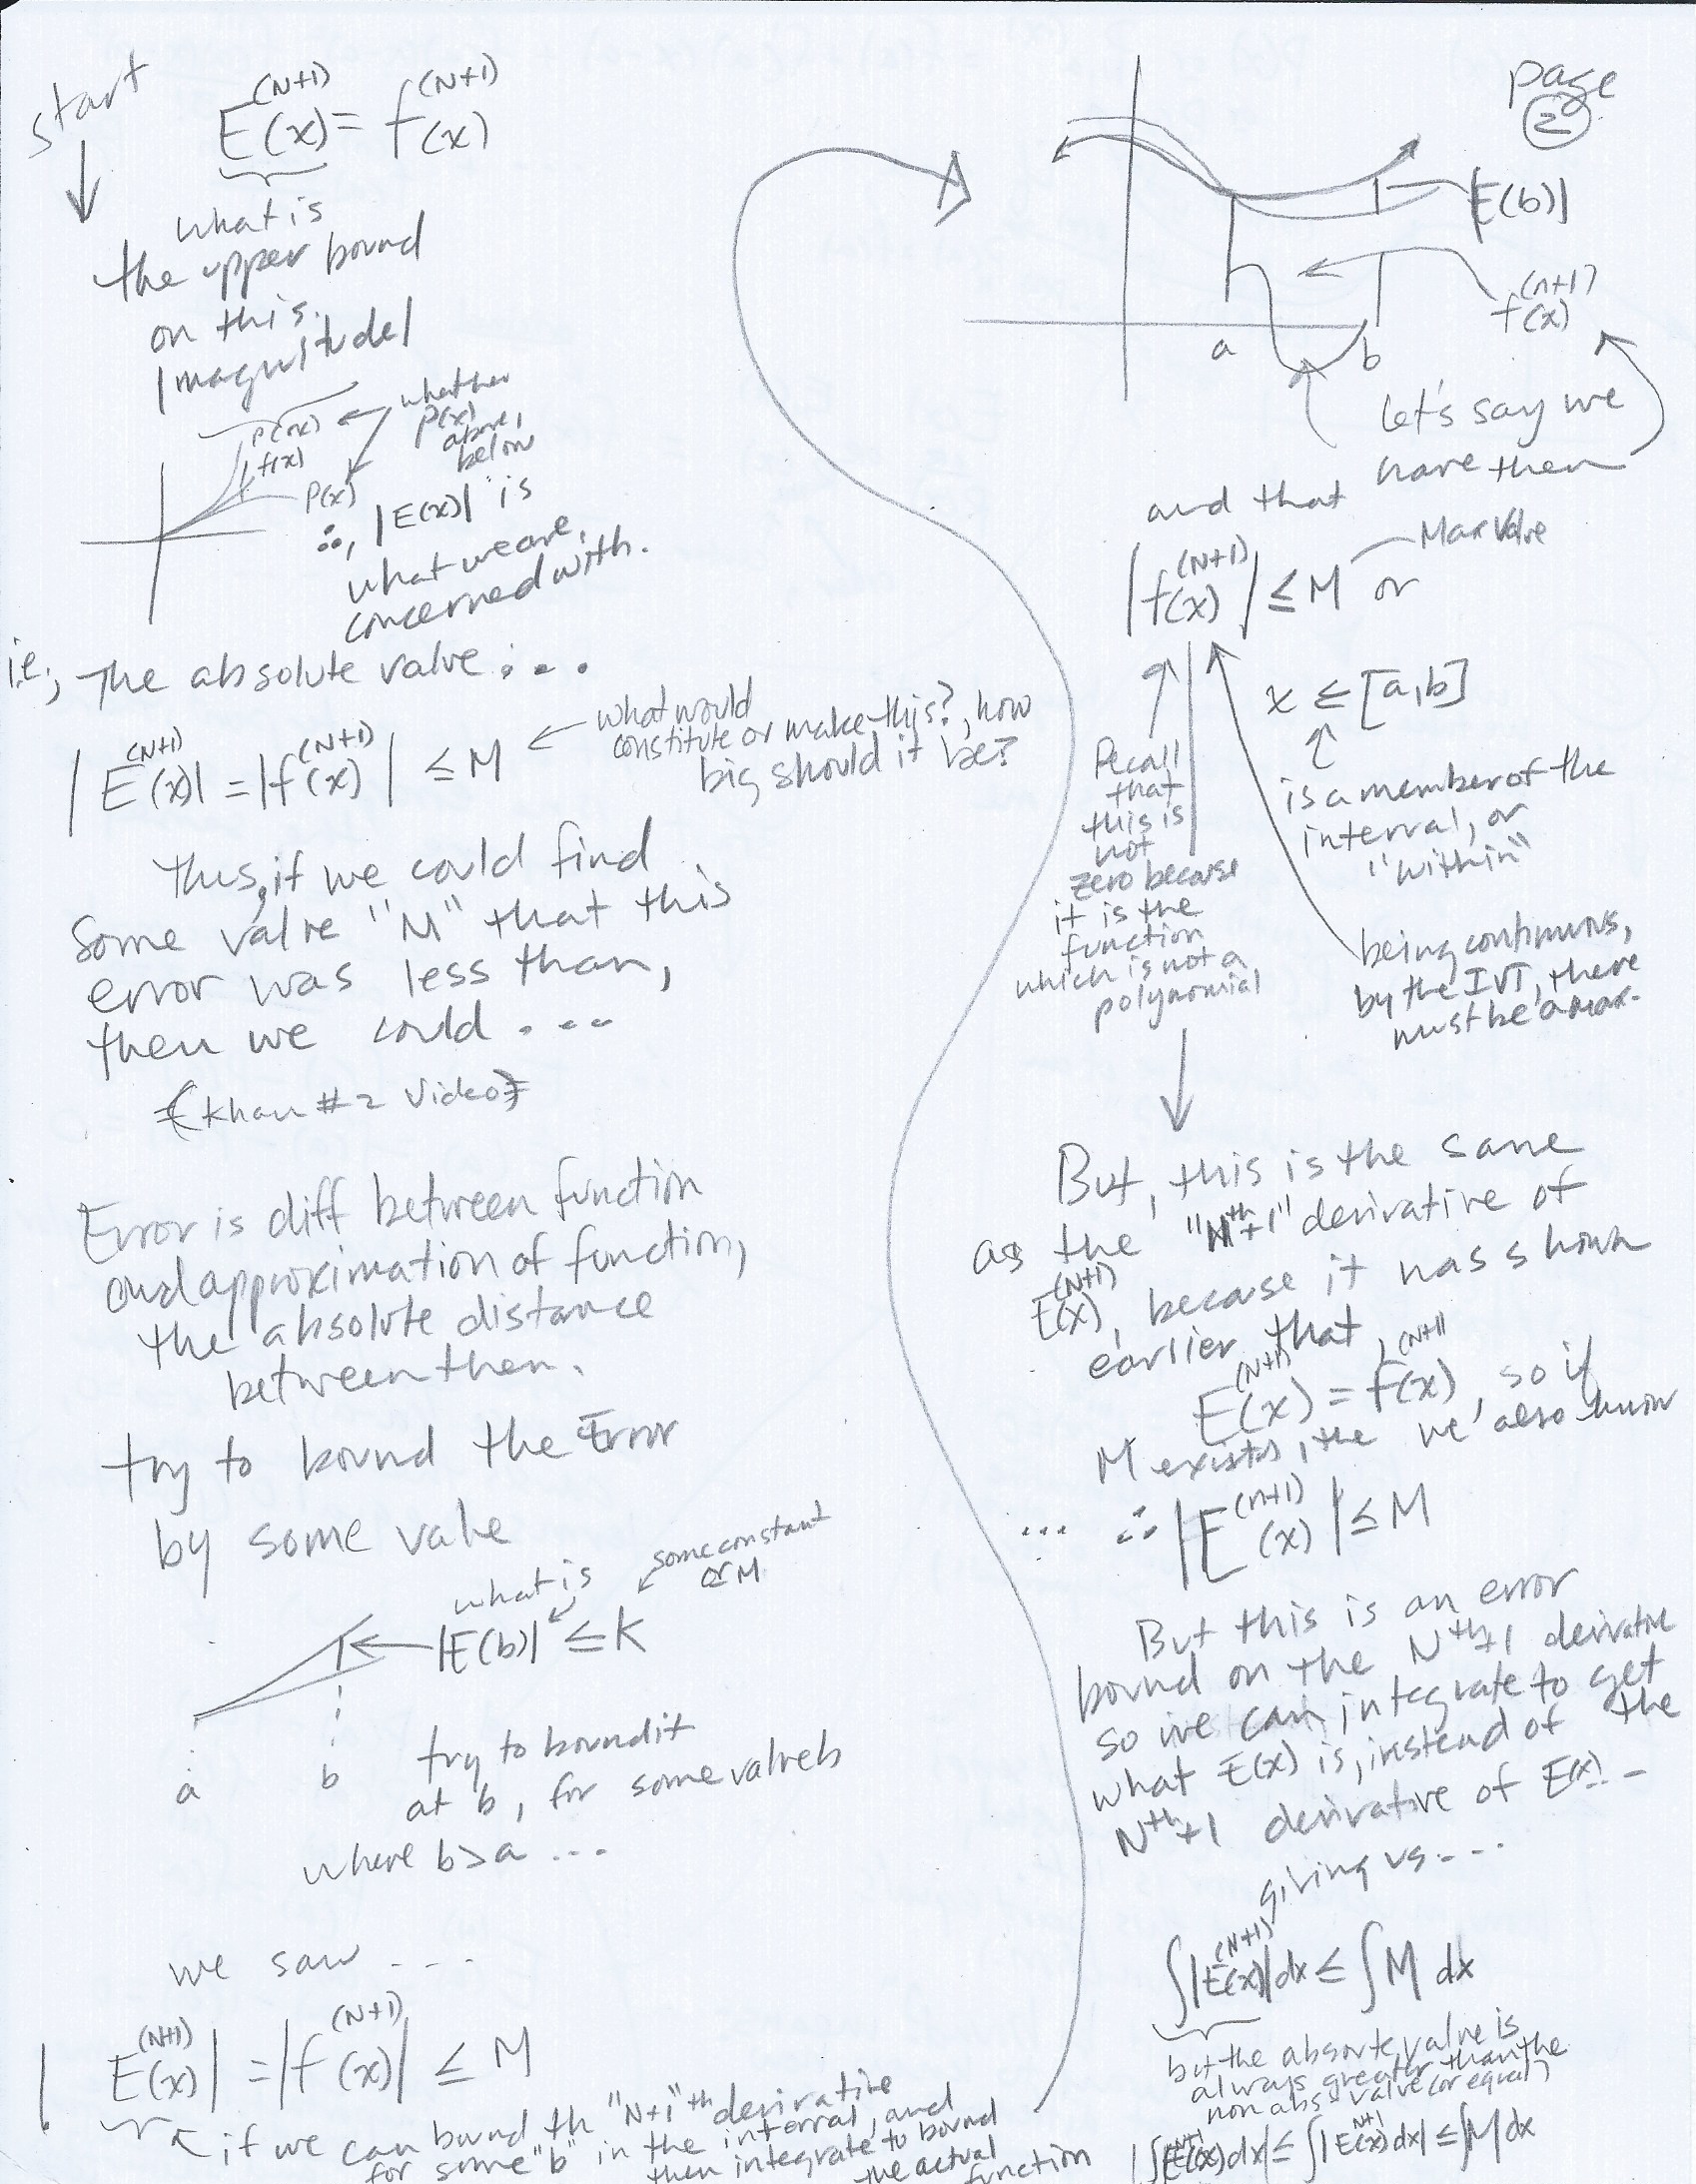 start
E^(N+1)(x) = f^(N+1)(x)
what is
the upper bound
on this.
|magnitude|
P(x)
f(x)
P(x)
whether
P(x)
above,
below
∴, |E(x)| is
what we are,
concerned with.
i.e., The absolute value : . . .
|E^(N+1)(x)| = |f^(N+1)(x)| ≤ M
what would
constitute or make this?, how
big should it be?
Thus, if we could find
some value "M" that this
error was less than,
then we could . . . .
(Khan #2 Video)
Error is diff between function
and approximation of function,
the absolute distance
between them.
try to bound the Error
by some value
what is
some constant
or M
|E(b)| ≤ K
a
b
try to bound it
at b, for some value b
where b > a ...
we saw . . . .
|E^(N+1)(x)| = |f^(N+1)(x)| ≤ M
if we can bound th "N+1"th derivative
for some "b" in the interval, and
then integrate to bound
the actual
function
page
2
|E(b)|
f^(n+1)(x)
a
b
Let's say we
have them
and that
|f^(N+1)(x)| ≤ M or
Max Value
x ∈ [a,b]
is a member of the
interval, or
"within"
Recall
that
this is
not
zero because
it is the
function
which is not a
polynomial
being continuous,
by the IVT, there
must be a max.
But, this is the same
as the "N^th+1" derivative of
E^(N+1)(x), because it was shown
earlier that,
E^(N+1)(x) = f^(N+1)(x), so if
M exists, the we also know
... ∴ |E^(n+1)(x)| ≤ M
But this is an error
bound on the N^th+1 derivative
so we can integrate to get
what E(x) is, instead of the
N^th+1 derivative of E(x)...
giving us....
∫|E^(N+1)(x)|dx ≤ ∫M dx
but the absolute value is
always greater than the
non abs-value (or equal)
|∫E^(N+1)(x) dx| ≤ ∫|E^(N+1)(x) dx| ≤ ∫M dx